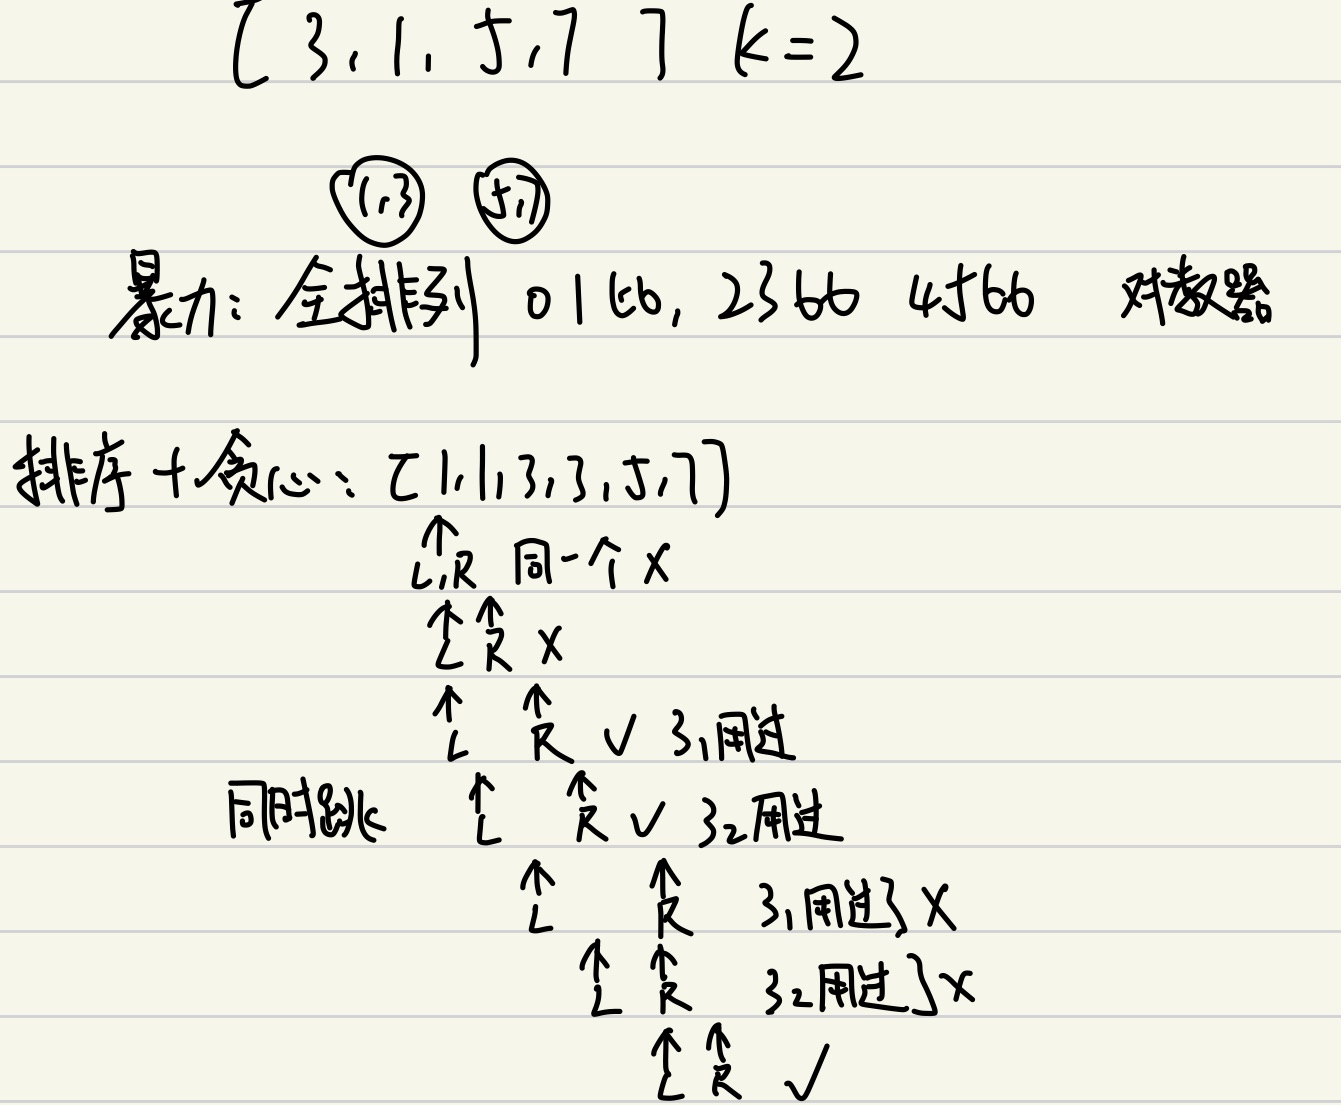 [3,1,5,7] k=2
1,3 5,7
暴力:全排列 01比, 23比 45比 对数器
排序+贪心: [1,1,3,3,5,7]
↑
L,R 同一个 X
↑ ↑
L R X
↑ ↑
L R ✓ 3₁用过
同时跳 ↑ ↑
L R ✓ 3₂用过
↑ ↑
L R 3₁用过了 X
↑ ↑
L R 3₂用过了 X
↑ ↑
L R ✓